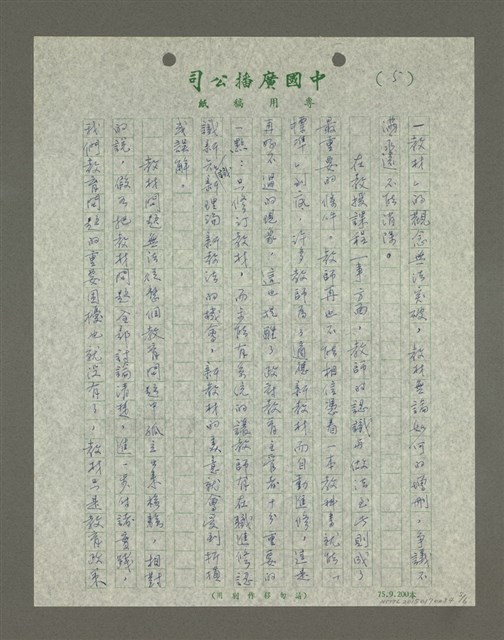 中國廣播公司
專用稿紙
(5)
「教材」的觀念無法突破，教材無論如何的增刪，爭議不
滿永遠不能消除。
在教授課程一事方面，教師的認識與做法
最重要的條件，教師再也不能相信憑着一本教科書就能「
標準」到底，許多教師為了適應新教材而自動進修，這是
再好不過的現象，這也提醒了政府教育主管者十分重要的
一點：只修訂教材，而未能有系統的讓教師有在職進修認
識新知新理論新教法的機會，新教材的美意就會受到折損
或誤解。
教材問題無法從整個教育問題中孤立，相對
的說，做不把教材問題全部討論清楚，進一步付諸實踐，
我們教育問題的重要困擾也就沒有了，教材只是教育政策
75.9.200本
(請勿移作別用)